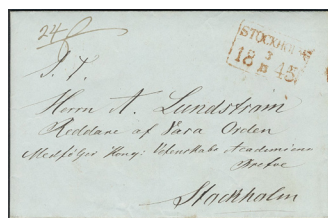 24
STOCKHOLM
3
18 45
S. T.
Herrn A. Lundström
Reddare af Vasa Orden
Medföljer Kongl: Vetenskabs Academiens
Brefve
Stockholm